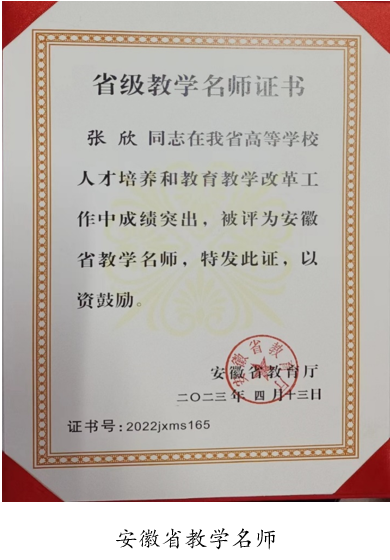 省级教学名师证书
张 欣 同志在我省高等学校
人才培养和教育教学改革工
作中成绩突出，被评为安徽
省教学名师，特发此证，以
资鼓励。
安徽省教育厅
二〇二三年 四 月十三日
证书号：2022jxms165
安徽省教学名师